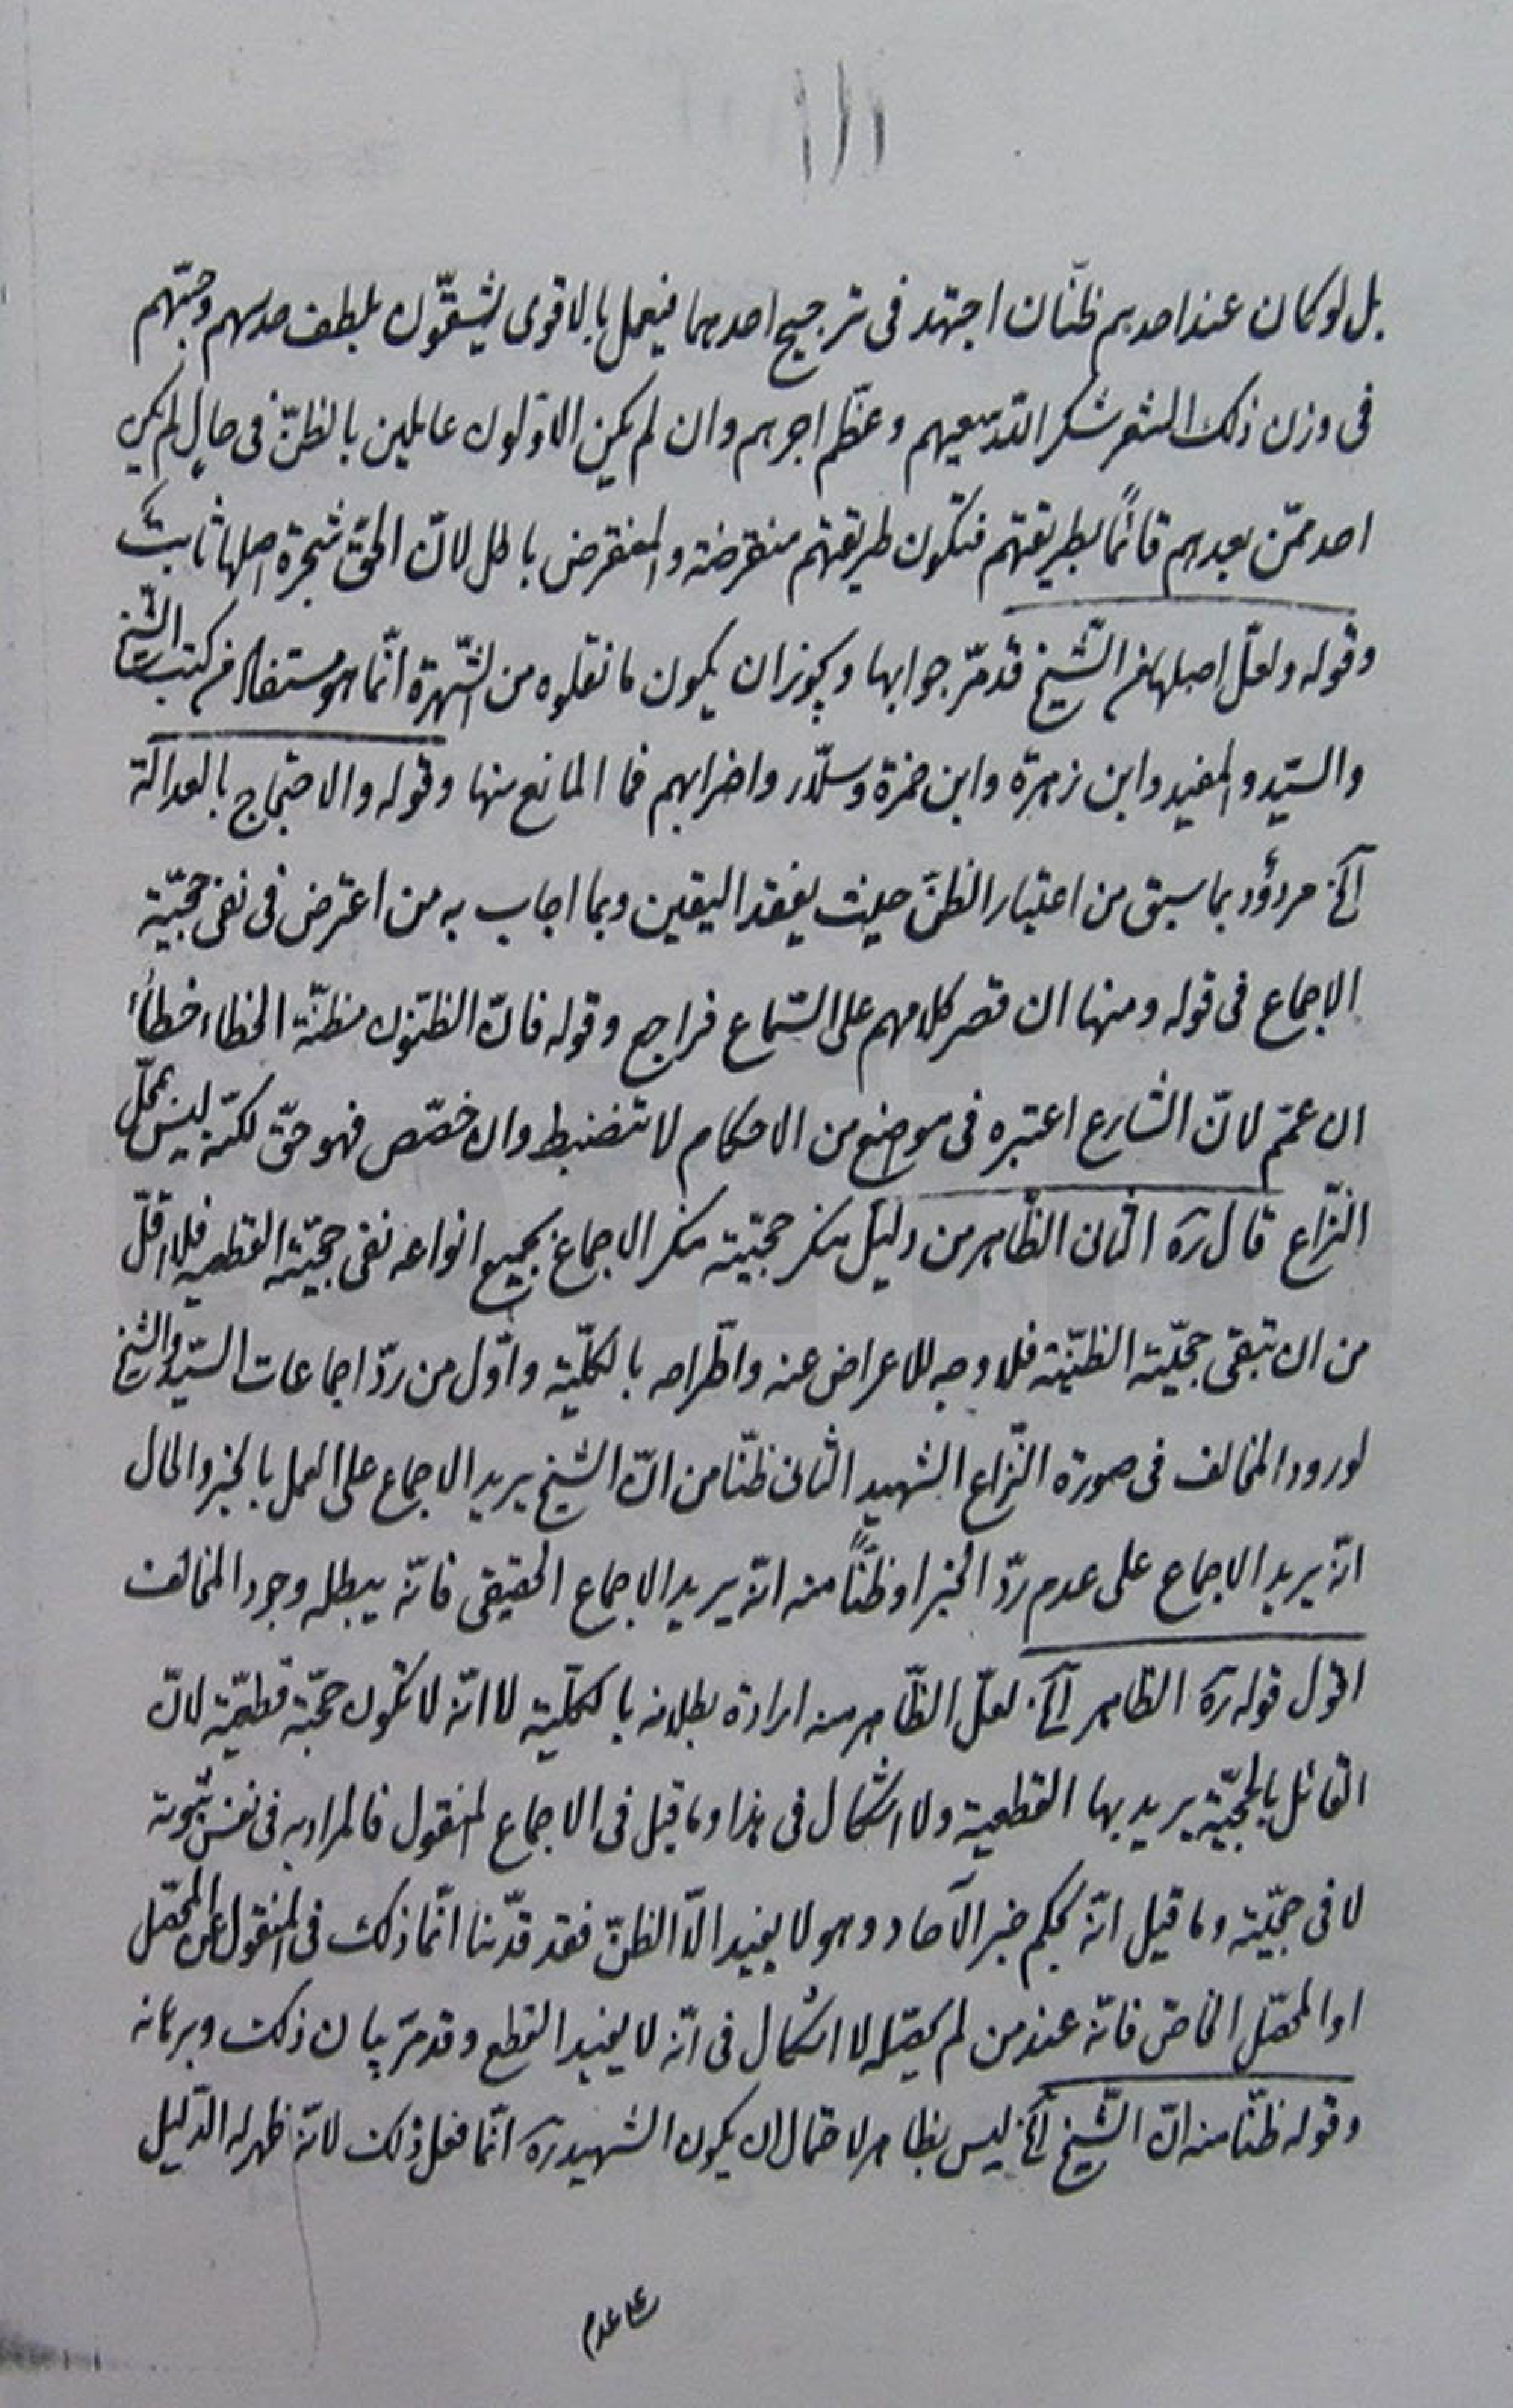 ١١١
بل لو كان عند احدهم ظنّان اجتهد فى ترجيح احدهما فيعمل بالاقوى ليشقّون بلطف حدسهم وجبّهم
فى وزن ذلك الشعر شكر الله سعيهم وعظّم اجرهم وان لم يكن الاوّلون عاملين بالظنّ فى حالٍ لم يكن
احد ممّن بعدهم قائمًا بطريقتهم فتكون طريقتهم منقرضة والمنقرض باطل لانّ الحقّ شجرة اصلها ثابت
وقوله ولعلّ اصلها من الشّيخ قد مرّ جوابها ويجوز ان يكون ما نقلوه من الشّهرة انّما هو مستفاد من كتب الشّيخ
والسيّد والمفيد وابن زهرة وابن حمزة وسلّار واضرابهم فما المانع منها وقوله والاحتجاج بالعدالة
آلخ مردؤد بما سبق من اعتبار الظنّ حيث يفقد اليقين وبما اجاب به من اعترض فى نفى حجّية
الاجماع فى قوله ومنها ان قصر كلامهم على السّماع فراجع وقوله فانّ الظنّون مظنّة الخطاء خطأ
ان عمّم لانّ الشارع اعتبره فى مواضع من الاحكام لا تنضبط وان خصّص فهو حقّ لكنّه ليس محلّ
النّزاع قال ره الثانى الظّاهر من دليل منكر حجيّته منكر الاجماع بجميع انواعه نفى حجيّته القطعية فلا اقلّ
من ان تبقى حجيّته الظنّيّة فلا وجه للاعراض عنه واطّراحه بالكلّيّة واوّل من ردّ اجماعات السيّد والشّيخ
لورود المخالف فى صورة النّزاع الشهيد الثانى ظنّا من انّ الشّيخ يريد الاجماع على العمل بالخبر والحال
انّه يريد الاجماع على عدم ردّ الخبر او ظنًّا منه انّه يريد الاجماع الحقيقى فانّه يبطله وجود المخالف
اقول قوله ره الظاهر آلخ لعلّ الظّاهر منه ارادة بطلانه بالكلّيّة لا انّه لا تكون حجّة قطعيّة لانّ
القائل بالحجيّة يريد بها القطعية ولا اشكال فى هذا وما قيل فى الاجماع المنقول فالمراد به فى نفس ثبوته
لا فى حجيّته وما قيل انّه بحكم خبر الآحاد وهو لا يفيد الّا الظنّ فقد قدّمنا انّما ذلك فى المنقول عن المحصّل
او المحصّل الخاصّ فانّه عند من لم يحصّله لا اشكال فى انّه لا يفيد القطع وقد مرّ بيان ذلك وبرهانه
وقوله ظنّا منه انّ الشّيخ آلخ ليس بظاهر لاحتمال ان يكون الشّهيد ره انّما فعل ذلك لانّه ظهر له الدّليل
على عدم